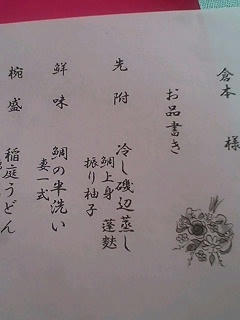 倉本 様
お品書き
先附 冷し磯辺蒸し
鯛上身 蓬麩
振り柚子
鮮味 鯛の半洗い
妻一式
椀盛 稲庭うどん